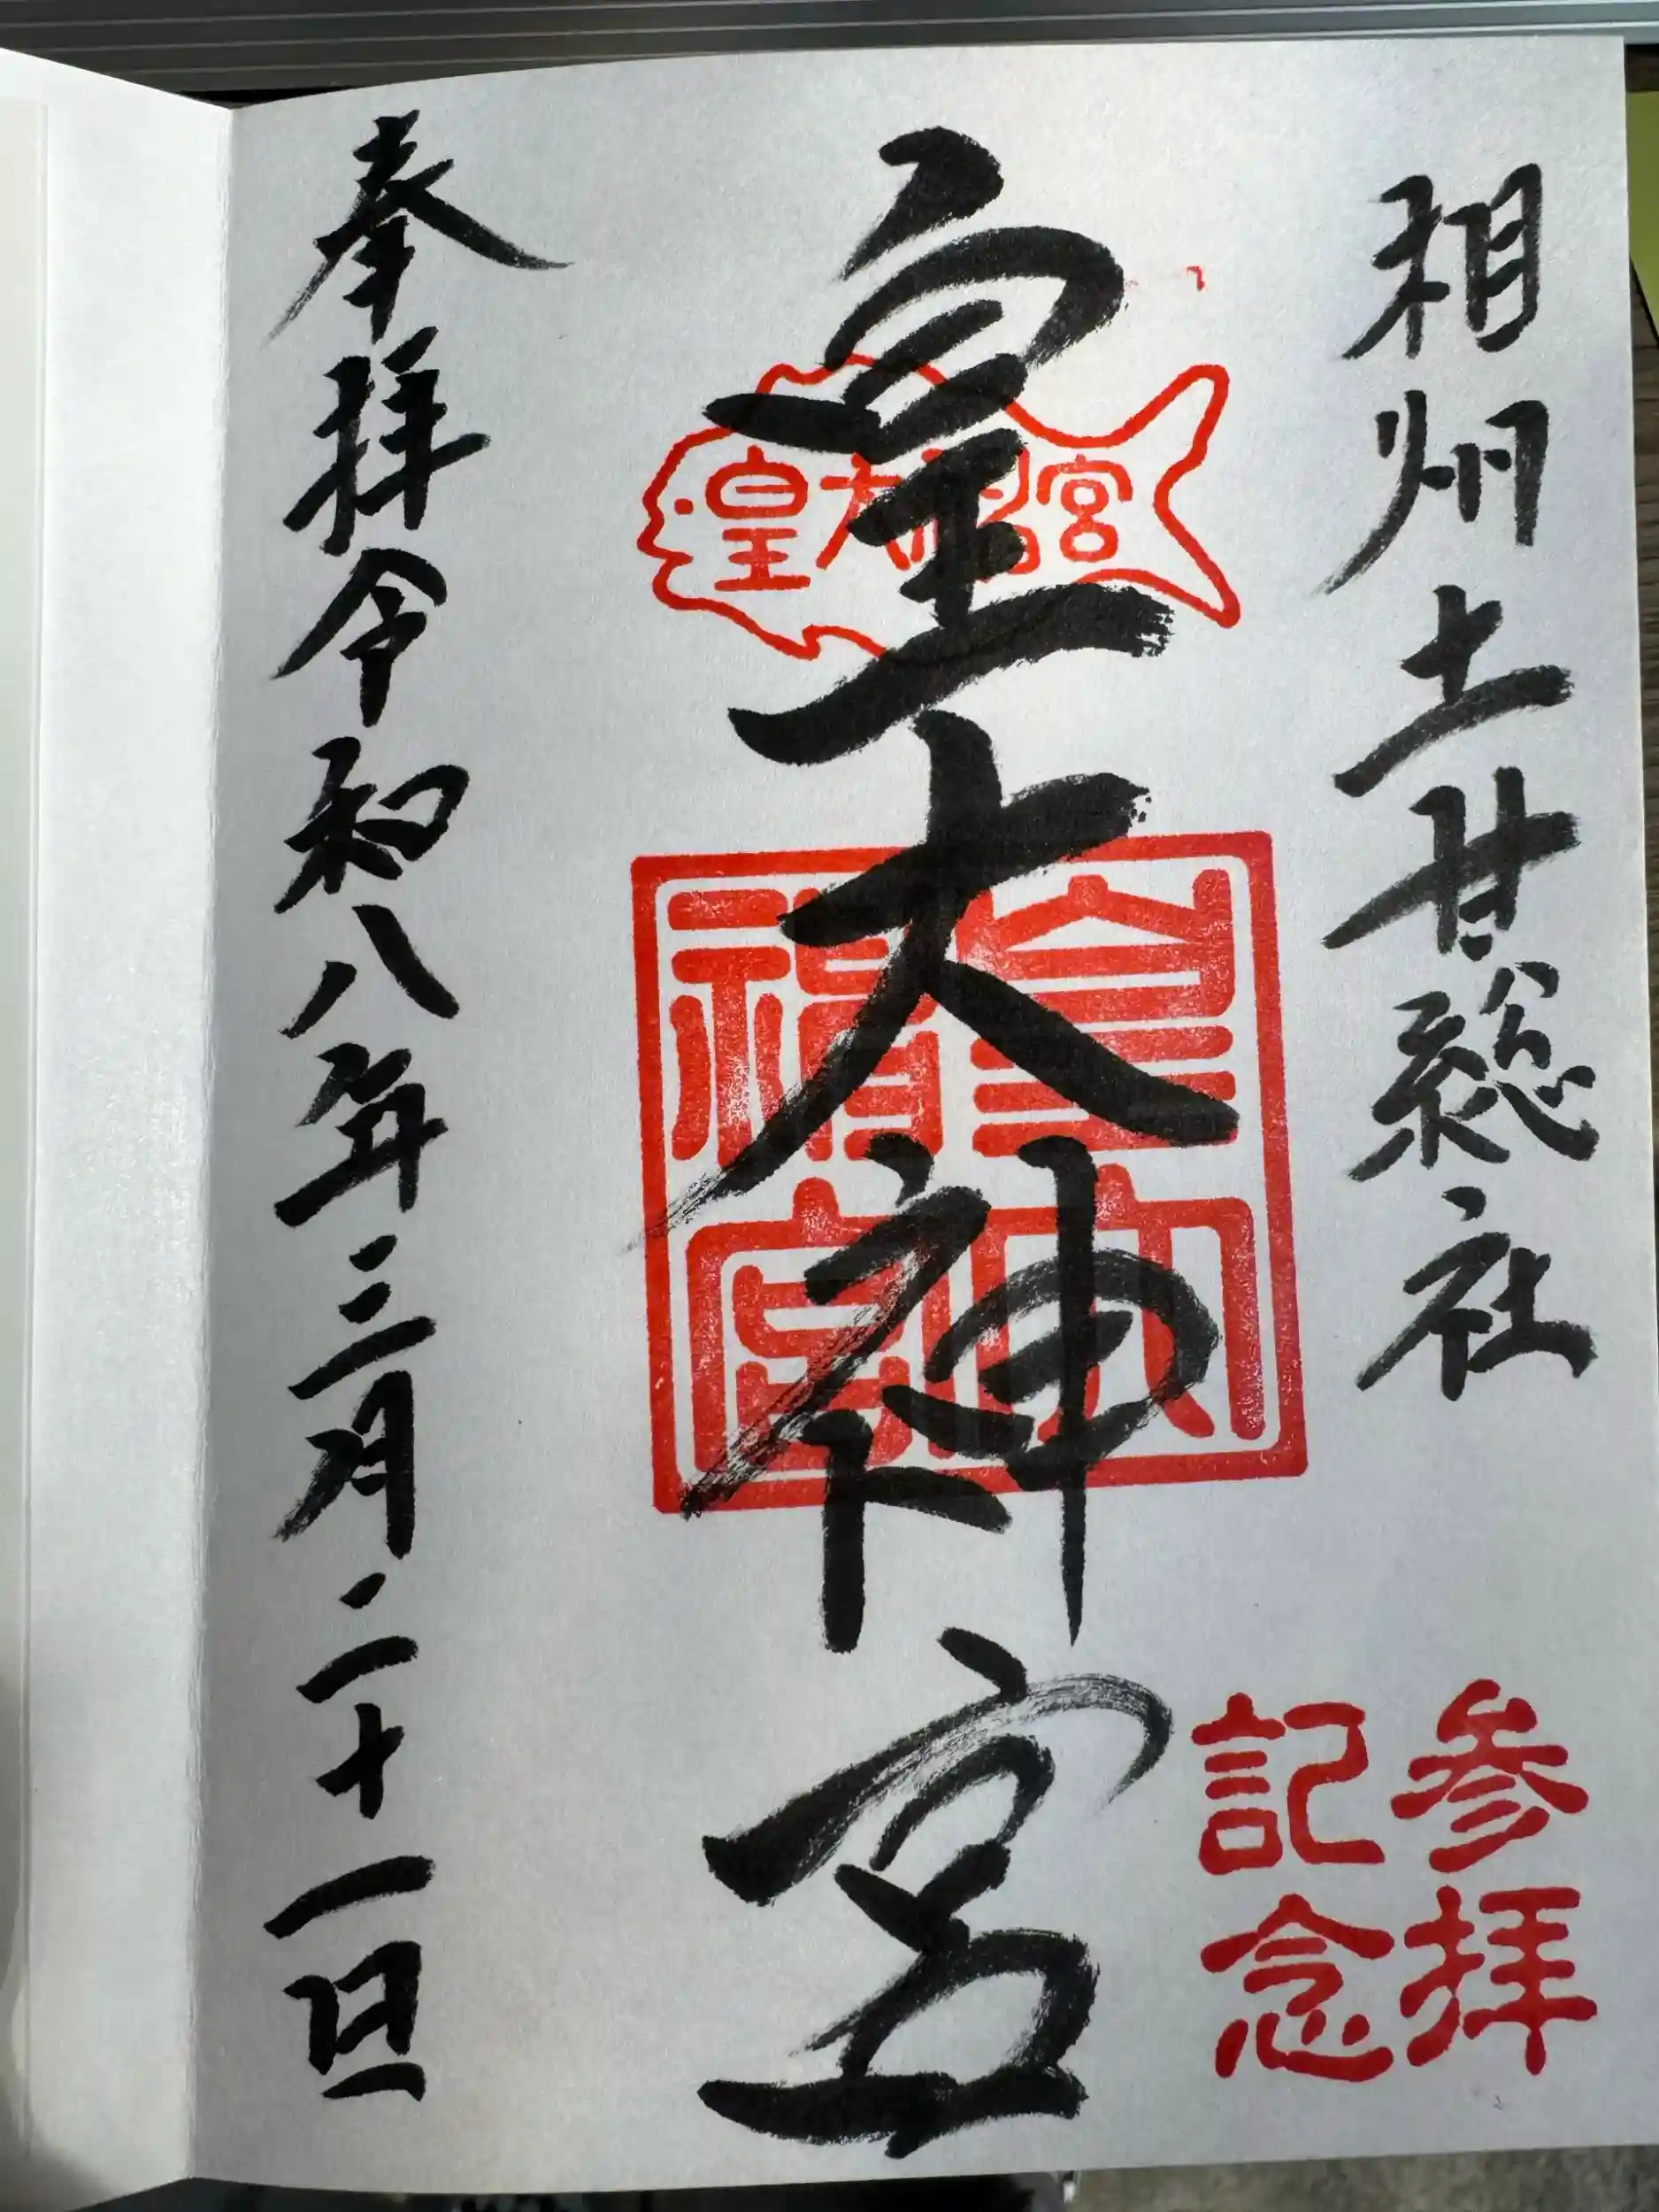 相州土甘総社
参拝
記念
皇大神宮
皇大神宮
皇大
神宮
奉拝令和八年三月二十一日